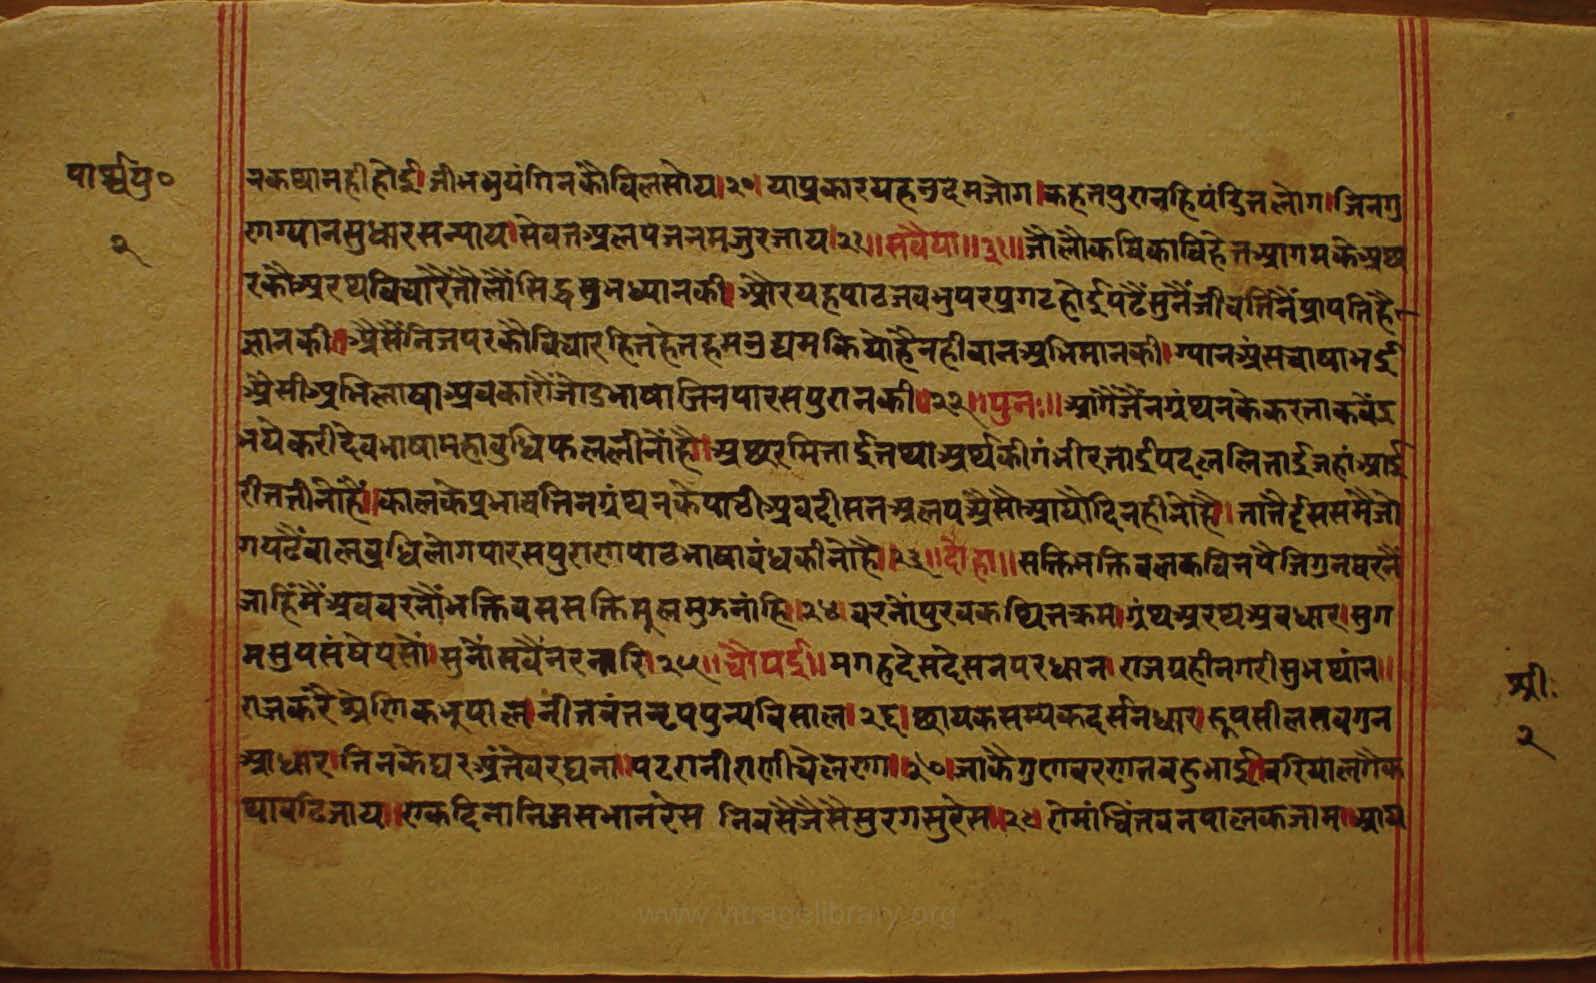 पार्श्वपु०
२
नकथानहीहोई।जीभभुयंगिनकौविलसोय।२०।याप्रकारयहनुदेमजोग।कहतपुरानहिपंडितलोग।जिनगु
णग्यानसुधारसन्याय।सेवतअलपजनमजुरजाय।२१॥सवैया॥३१॥जौलौकविकाविहेतआगमकेअष्य
रकौअरथविचारैतौलौंसिद्धसुभध्यानकी।औरयहपाठजबभुपरप्रगटहोईपढैंसुनैंजीवतिनैंप्रापतिहै
ज्ञानकी।ऐसैंनिजपरकौविचारहितहेतहमनुद्यमकियोहैनहीबानअभिमानकी।ग्यानअंसचाषाभई
ऐसीअभिलाषाअबकारौंजोडभाषाजिनपारसपुरानकी।२२॥पुनः॥आगैंजैंनग्रंथनकेकरताकवेंद्र
भयेकरीदेवभाषामहाबुधिफललीनौंहै।अष्यरमिताईतथाअर्थकीगंभीरताईपदललिताईजहांआई
रीततीनोंहै।कालकेप्रभावतिनग्रंथनकेपाठीअबदीसतअलपऐसौआयोदिनहीनोहै।तातैईससमैजो
गपढैंबालबुधिलोगपारसपुराणपाठभाषाबंधकीनोहै।२३॥दोहा॥सक्तिभक्तिबलकविनपैजिगुनबरनैं
जाहिंमैंअबबरनौंभक्तिबससक्तिमूलमुजनांहि।२४।बरनौंपुरबकथितक्रम।ग्रंथअरथअवधार।सुग
मरुपसंषेपसौं।सुनौंसबैंनरनारि।२५॥चौपई॥मगहदेसदेसनपरधान।राजग्रहीनगरीसुभथांन॥
राजकरैश्रेणिकभुपाल।नीतवंतनृपपुन्यविसाल।२६।छायकसम्यकदर्सनधार।रूपसीलसबगुन
आधार।तिनकेघरअंतेवरघना।पटरानीराणीचेलणा।२७।जाकेगुणबरणतबहुभाई।बरियालगैक
थाबढिजाय।एकदिनानिजसभानरेस निवसैजैसैसुरगसुरेस।२८।रोमांचितबनपालकजाम।आय
श्रीः
२
www.vitragelibrary.org